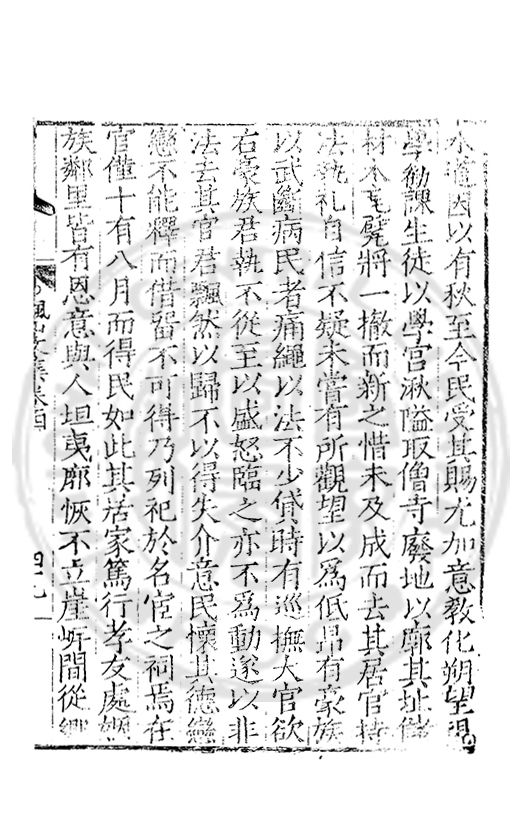 水道因以有秋至今民受其賜尤加意敎化朔望視
學勸課生徒以學宮湫隘取僧寺廢地以廓其址儲
材木甓將一撤而新之惜未及成而去其居官持
法執礼自信不疑未嘗有所觀望以爲低昂有豪族
以武斷病民者痛繩以法不少貸時有巡撫大官欲
右豪族君執不從至以盛怒臨之亦不爲動遂以非
法去其官君飄然以歸不以得失介意民懷其德戀
戀不能釋而借留不可得乃列祀於名宦之祠焉在
官僅十有八月而得民如此其居家篤行孝友處姻
族鄰里皆有恩意與人坦夷廓恢不立崖岸間從鄉
楓山文集卷四
四十九